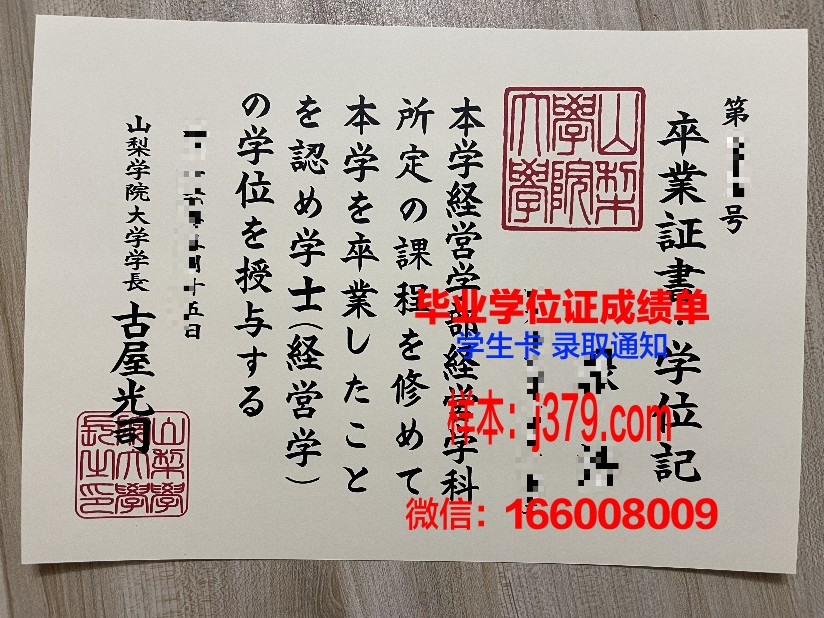 第 号
卒業証書・学位記
山梨
學院
大學
本学経営学部経営学科
所定の課程を修めて
本学を卒業したこと
を認め学士(経営学)
の学位を授与する
月十五日
山梨学院大学学長 古屋光司
山梨學
院大學
長之印
毕业学位证成绩单
学生卡 录取通知
样本：j379.com
微信：166008009